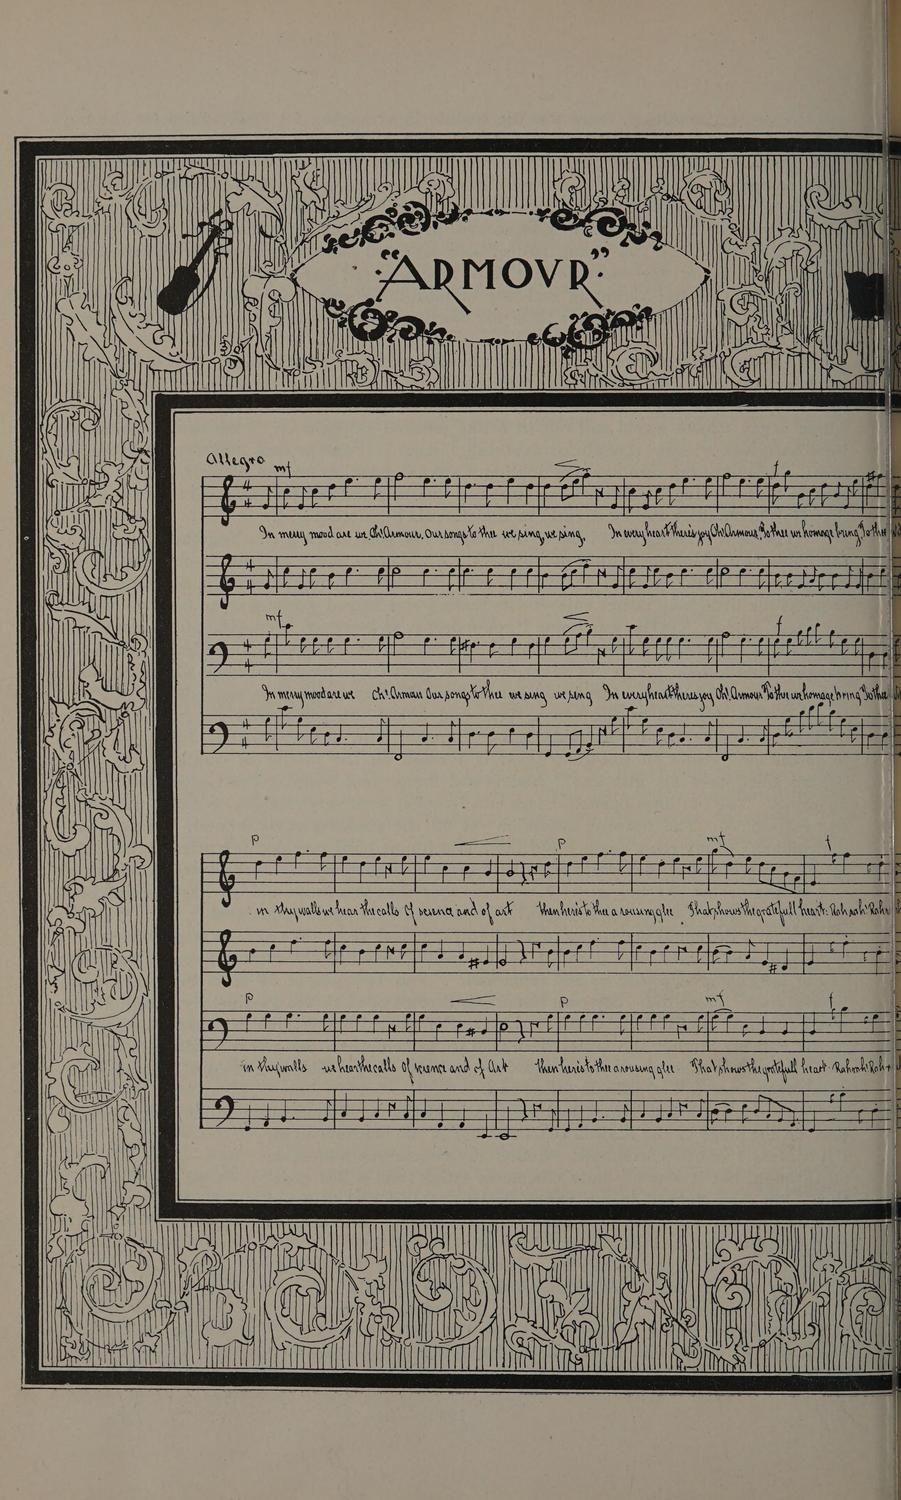 "ARMOVR"
Allegro mf f
In merry mood are we Oh! Armour, Our songs to thee we sing, we sing, In every heart there's joy Oh! Armour, To thee we homage bring, To thee
mf f
In merry mood are we Oh! Armour Our songs to thee we sing we sing In every heart there's joy Oh! Armour To thee we homage bring To thee
p p mf f
in thy walls we hear the calls Of science and of art then here's to thee a rousing glee That shows the gratefull heart. Rah rah! Rah
p p mf f
in thy walls we hear the calls Of science and of Art then here's to thee a rousing glee That shows the gratefull heart Rah rah! Rah